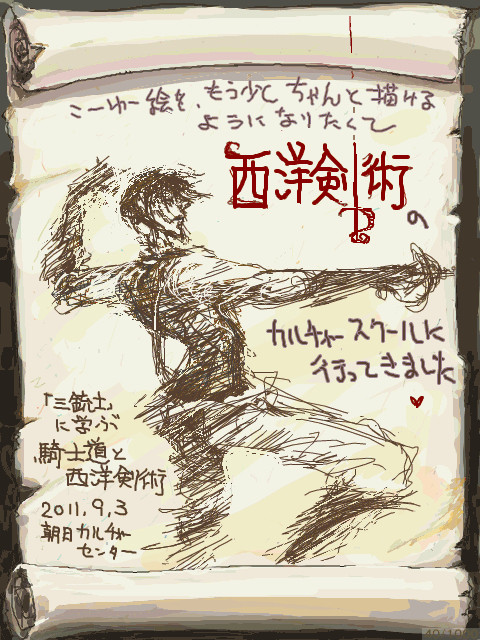 こーゆー絵を、もう少しちゃんと描ける
ようになりたくて
西洋剣術
の
カルチャースクールに
行ってきました
「三銃士」
に学ぶ
騎士道と
西洋剣術
2011.9.3
朝日カルチャー
センター